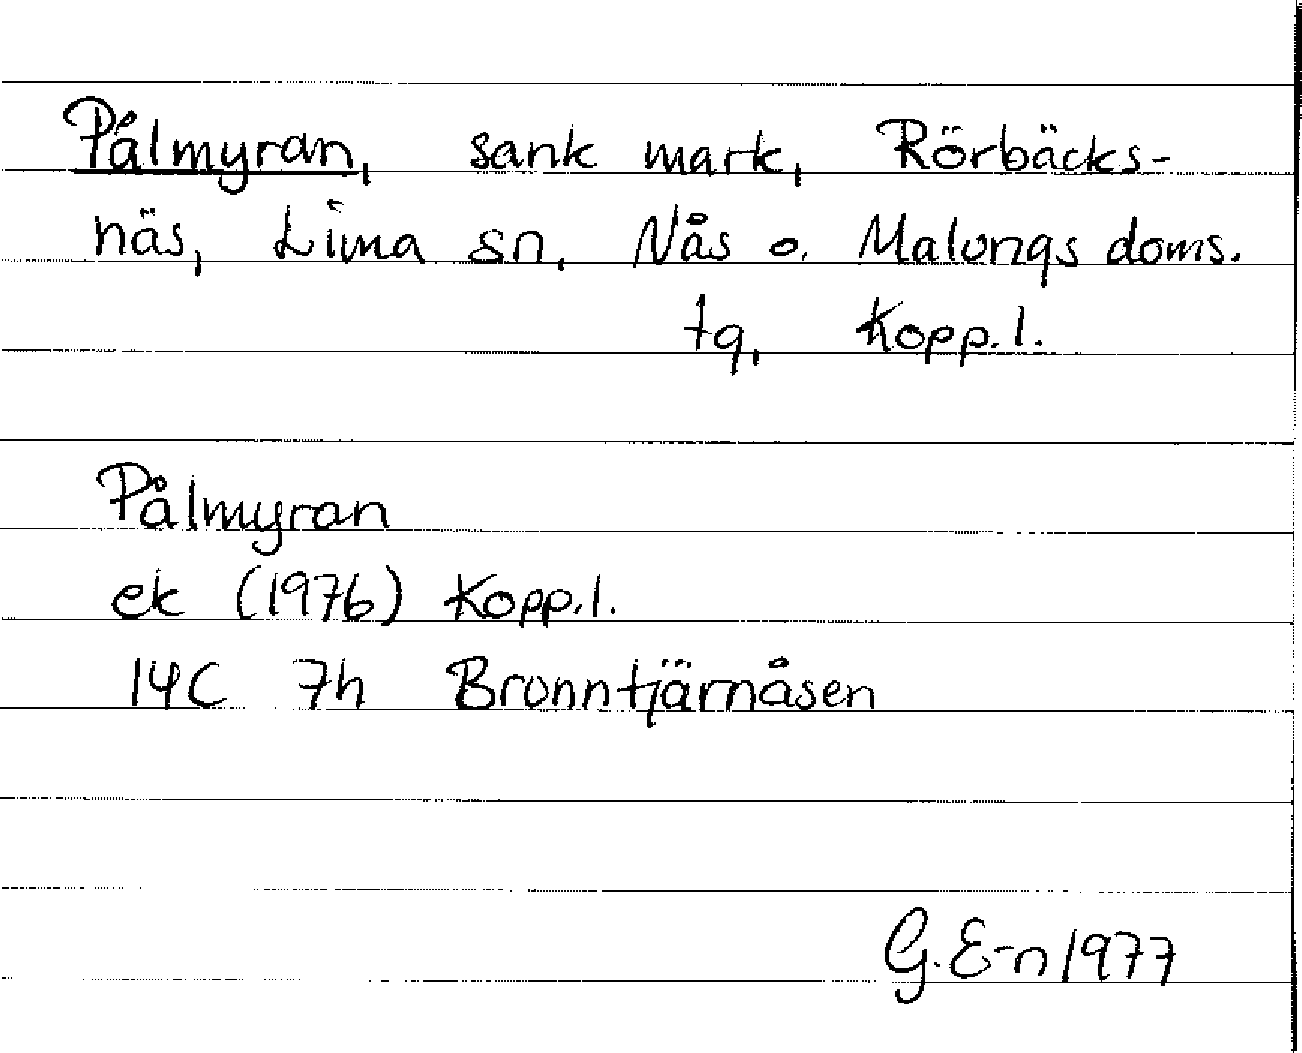 Pålmyran, sank mark, Rörbäcks-
näs, Lima sn, Nås o. Malungs doms.
tg, Kopp.l.
Pålmyran
ek (1976) Kopp.l.
14C 7h Bronntjärnåsen
G.E-n 1977